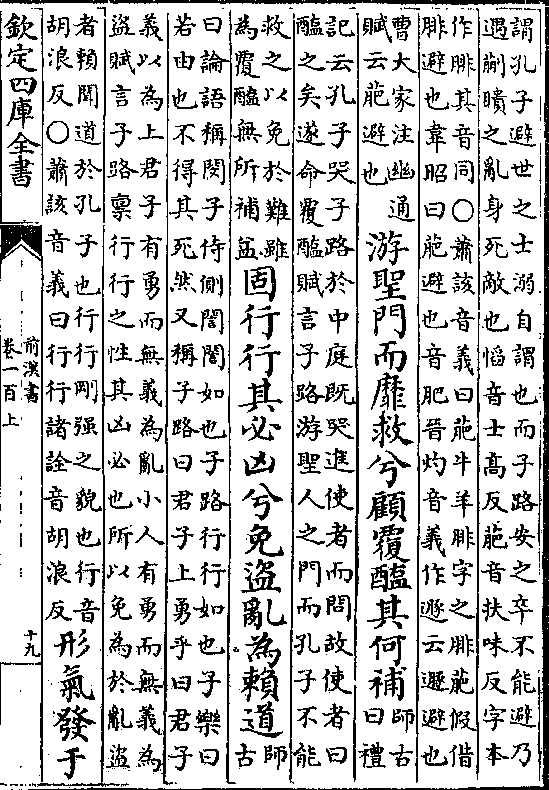 謂孔子避世之士溺自謂也而子路安之卒不能避乃
遇蒯聵之亂身死敵也慆音士高反萉音扶味反字本
作腓其音同〇蕭該音義曰萉牛羊腓字之腓萉假借
腓避也韋昭曰萉避也音肥晉灼音義作遯云遯避也
曹大家注幽通
賦云萉避也
游聖門而靡救兮顧覆醢其何補
師古
曰禮
記云孔子哭子路於中庭既哭進使者而問故使者曰
醢之矣遂命覆醢賦言子路游聖人之門而孔子不能
救之以免於難雖
為覆醢無所補益
固行行其必凶兮免盜亂為賴道
師
古
曰論語稱閔子侍側誾誾如也子路行行如也子樂曰
若由也不得其死然又稱子路曰君子上勇乎曰君子
義以為上君子有勇而無義為亂小人有勇而無義為
盜賦言子路稟行行之性其凶必也所以免為於亂盜
者賴聞道於孔子也行行剛强之貌也行音
胡浪反〇蕭該音義曰行行諸詮音胡浪反
形氣發于
欽定四庫全書
前漢書
卷一百上
十九